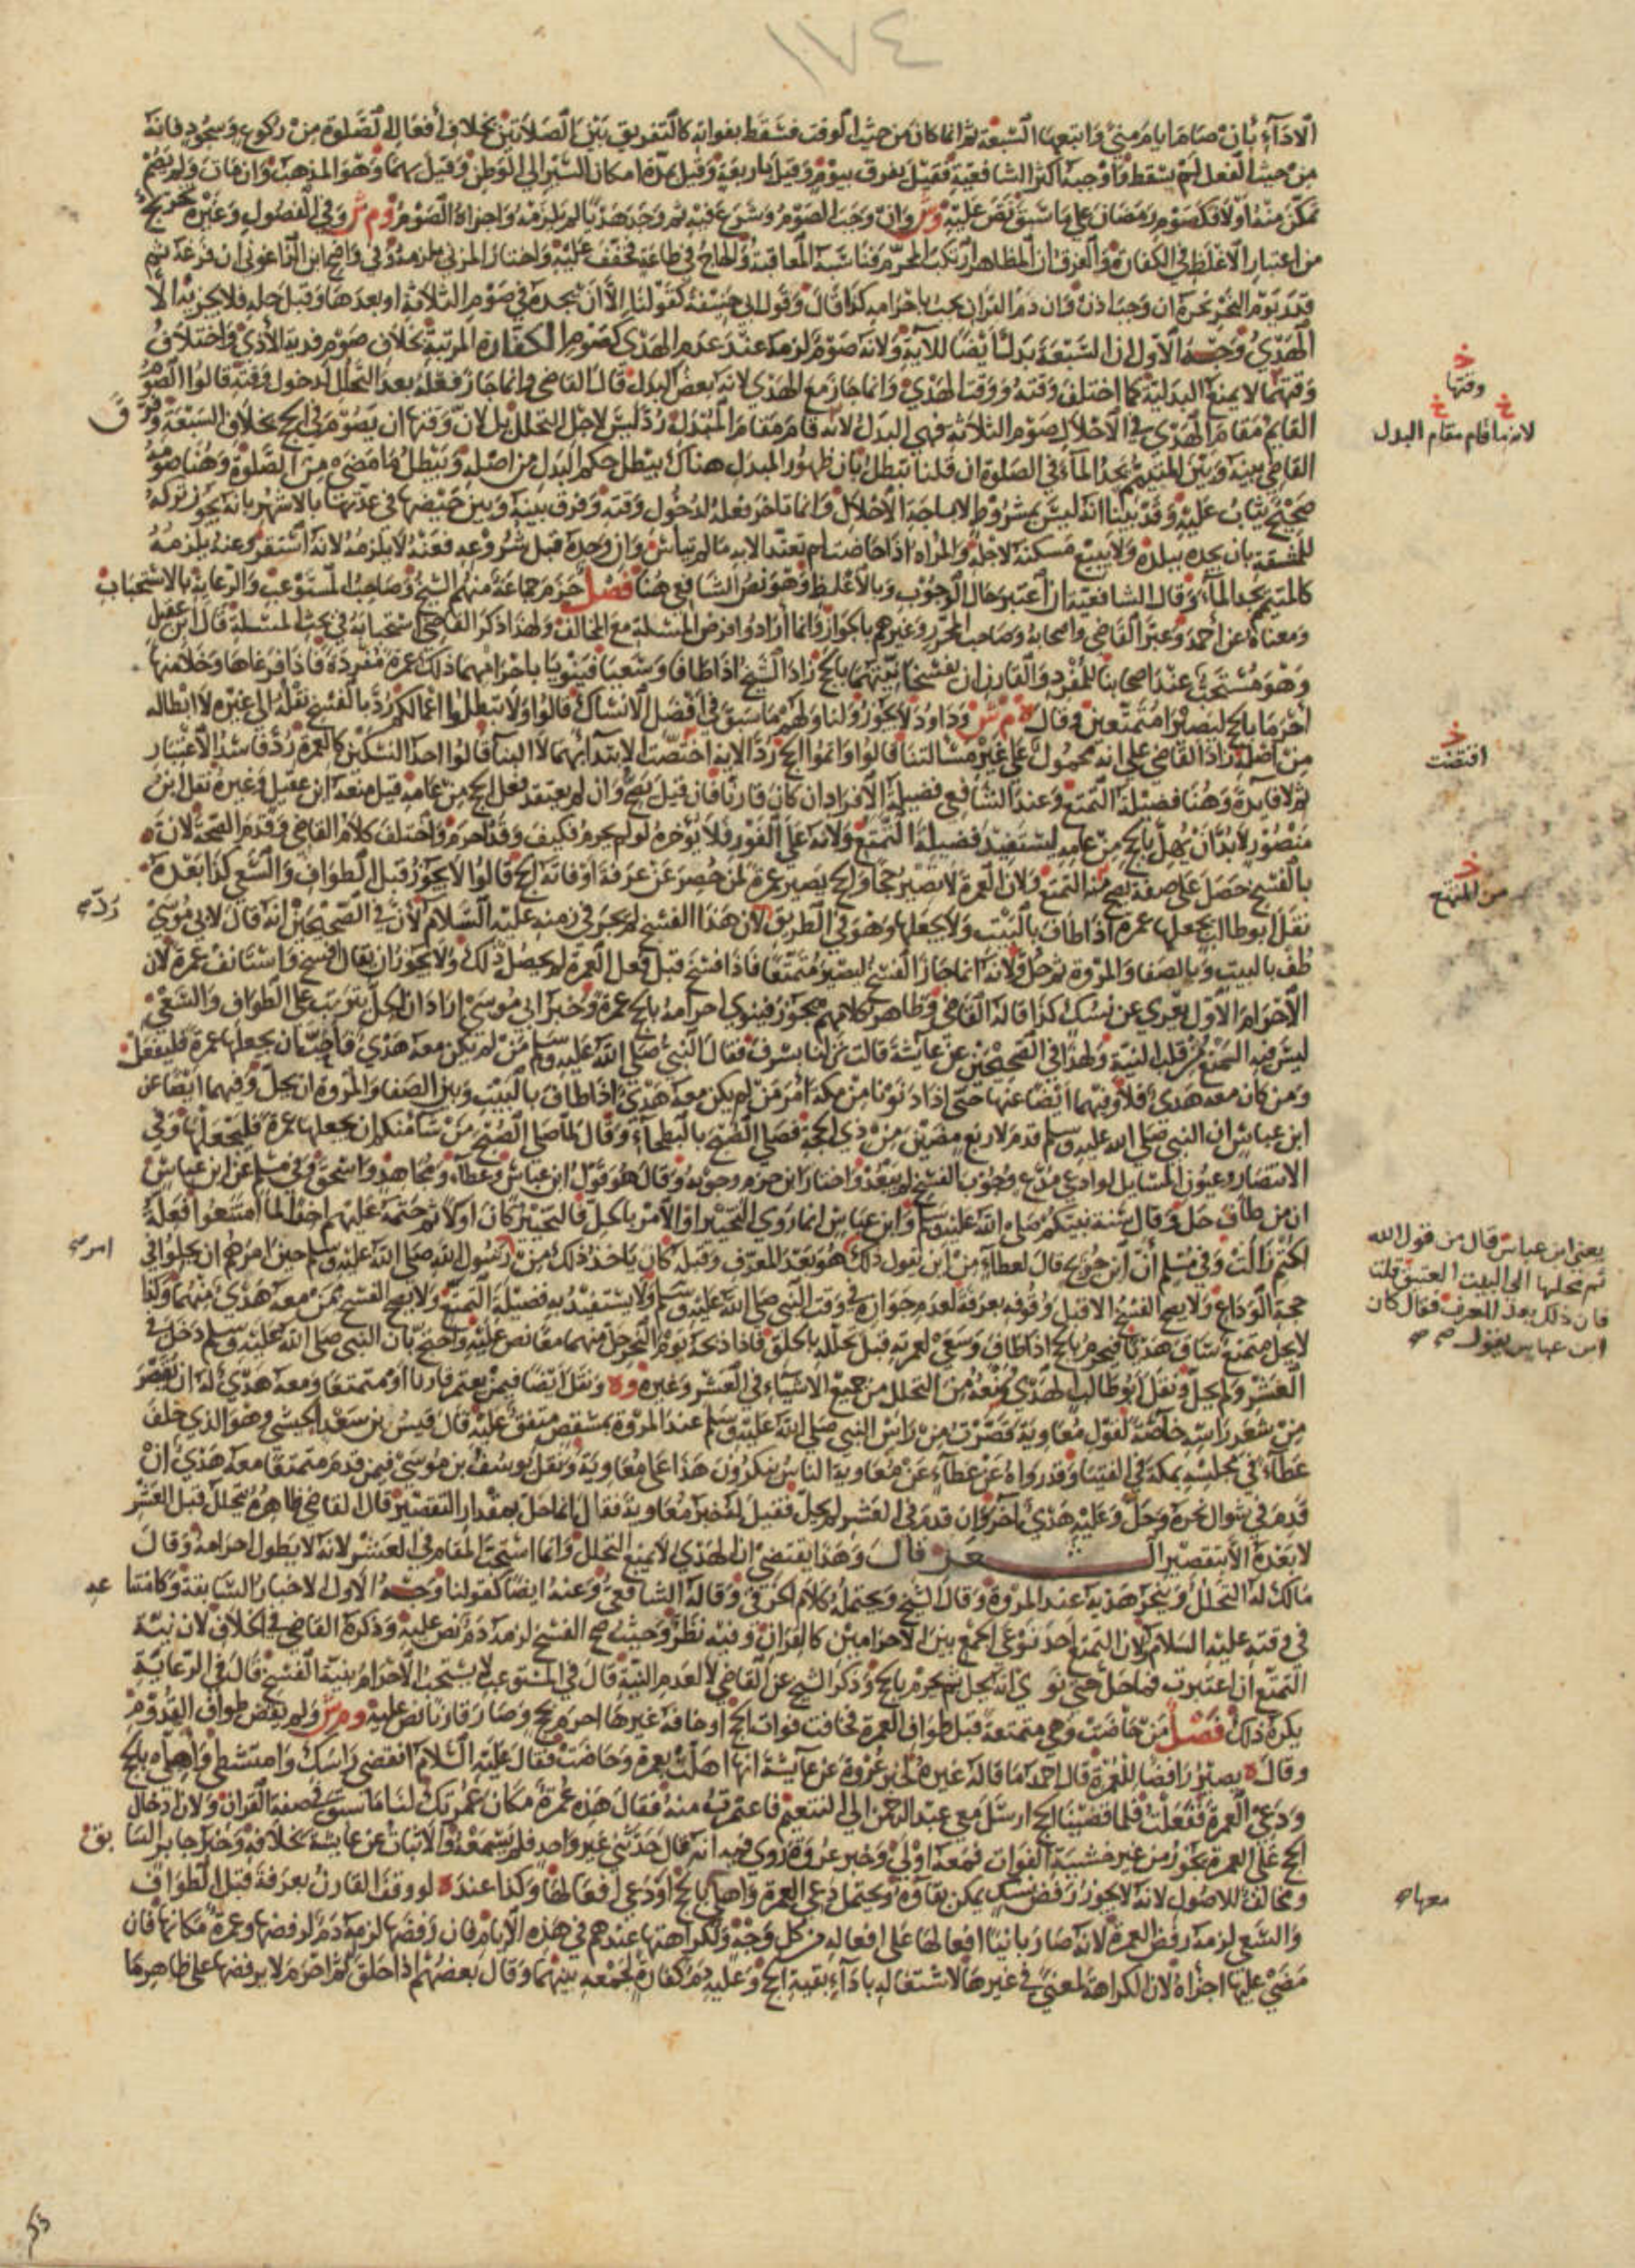 ١٧٤
الاداء بان صام ايام منى واتبعها السبعة ثم انما كان من حيث الوقت فسقط بفواته كالتفريق بين الصلاتين بخلاف افعال الصلوة من ركوع وسجود فانه
من حيث الفعل لم يسقط واوجبه اكثر الشافعية فقيل يفرق بيوم وقيل باربعة وقيل بمدة امكان السير الى الوطن وقيل بهما وهو المذهب وان مات ولم يصم
تمكن منه اولا فكصوم رمضان على ما سبق نص عليه وش وان وجب الصوم وشرع فيه ثم وجد هديا لم يلزمه واجزاه الصوم وم ش وفي الفصول وغيره تخريج
من اعتبار الاغلظ في الكفارة والفرق ان المظاهر ارتكب المحرم فناسبه المعاقبة والحاج في طاعة فخفف عليه واختار المزني يلزمه وفي واضح ابن الزاغوني ان فرغه ثم
قدر يوم النحر نحره ان وجبا اذن وان دم القران يجب باحرامه كذا قال وقول ابي حنيفة كقولنا الا ان يجده في صوم الثلاثة او بعدها وقبل حله فلا يجزيه الا
الهدي وجه الاول ان السبعة بدلا ايضا للاية ولانه صوم لزمه عند عدم الهدي كصوم الكفارة المرتبة بخلاف صوم فدية الاذى واختلاف
وقتهما لا يمنع البدلية كما اختلف وقته ووقت الهدي وانما جاز مع الهدي لانه بعض البدل قال القاضي وانما جاز فعله بعد التحلل لدخول وقته قالوا الصوم
القايم مقام الهدي في الاحلال صوم الثلاثة فهي البدل لانه قام مقام المبدلة رد ليس لاجل التحلل بل لان وقتها ان يصوم في الحج بخلاف السبعة وفر
ق
القاضي بينه وبين المتيمم يجد الماء في الصلوة ان قلنا تبطل بان ظهور المبدل هناك يبطل حكم البدل من اصله ويبطل ما مضى من الصلوة وهنا صومه
صحيح يثاب عليه وقد بينا انه ليس بشروط لاباحة الاحلال وانما تاخر فعله لدخول وقته وفرق بينه وبين حيضها في عدتها بالاشهر بانه يجوز تركه
للمشقة بان يجده ببلده ولا يبيع مسكنه لاجله والمراه اذا حاضت لم تعتد الا به ما لم تياس وان وجده قبل شروعه فعنه لا يلزمه لانه استقر وعنه يلزمه
كالمتيمم يجد الماء وقال الشافعية ان اعتبر حال الوجوب وبالاغلظ وهو نص الشافعي هنا فصل جزم جماعة منهم الشيخ وصاحب المستوعب والرعاية بالاستحباب
ومعناه عن احمد وعبر القاضي واصحابه وصاحب المحرر وغيرهم بالجواز وانما ارادوا فرض المسئلة مع المخالف ولهذا ذكر القاضي استحبابه في بحث المسئلة قال ابن عقيل
وهو مستحب عند اصحابنا للمفرد والقارن ان يفسخا نيتهما بالحج زاد الشيخ اذا طافا وسعيا فينويا باحرامهما ذلك عمرة مفردة فاذا فرغاها وحلا منها
احرما بالحج ليصيرا متمتعين وقال ه م ش وداود لا يجوز ولنا ولهم ما سبق في افضل الانساك قالوا ولا تبطلوا اعمالكم رد بالفسخ نقله الى غيره لا ابطاله
من اصله زاد القاضي على انه محمول على غير مسالتنا قالوا واتموا الحج رد الاية اختصت الابتدا بهما لا البنا قالوا احد النسكين كالعمرة رد فاسد الاعتبار
ثم لا فايدة وهنا فضيلة التمتع وعند الشافعي فضيلة الافراد ان كان قارنا فان قيل يصح وان لم يعتقد فعل الحج من عامه قيل منعه ابن عقيل وغيره نقل ابن
منصور لا بد ان يهل بالحج من عامه ليستفيد فضيلة التمتع ولانه على الفور فلا يؤخره لو لم يحرم فكيف وقد احرم واختلف كلام القاضي وقدم الصحة لان
بالفسخ حصل على صفة يصح منه التمتع ولان العمرة لا تصير حجا والحج يصير عمرة لمن حصر عن عرفة او فاته الحج قالوا لا يجوز قبل الطواف والسعي كذا بعده
نقل ابو طالب يجعلها عمرة اذا طاف بالبيت ولا يجعلها وهو في الطريق لان هذا الفسخ لم يجز في زمنه عليه السلام لان في الصحيحين انه قال لابي موسى
طف بالبيت وبالصفا والمروة ثم حل ولانه انما جاز الفسخ ليصير متمتعا فاذا فسخ قبل فعل العمرة لم يحصل ذلك ولا يجوز ان يقال افسخ واستانف عمرة لان
الاحرام الاول تعري عن نسك كذا قاله القاضي وظاهر كلامهم يجوز فينوي احرامه بالحج عمرة وخبر ابي موسى اراد ان الحل يترتب على الطواف والسعي
ليس فيه المنع من قلب النية ولهذا في الصحيحين عن عايشة قالت نزلنا بسرف فقال النبي صلى الله عليه وسلم من لم يكن معه هدي فاحب ان يجعلها عمرة فليفعل
ومن كان معه هدي فلا وفيهما ايضا عنها حتى اذا دنونا من مكة امر من لم يكن معه هدي اذا طاف بالبيت وبين الصفا والمروة ان يحل وفيهما ايضا عن
ابن عباس ان النبي صلى الله عليه وسلم قدم لاربع مضين من ذي الحجة فصلى الصبح بالبطحاء وقال لما صلى الصبح من شا منكم ان يجعلها عمرة فليجعلها وفي
الانتصار وعيون المسايل لو ادعى مدع وجوب الفسخ لم يبعد واختار ابن حزم وجوبه وقال هو قول ابن عباس وعطاء ومجاهد واسحق وفي مسلم عن ابن عباس
ان من طاف حل وقال سنة نبيكم صلى الله عليه وسلم وابن عباس انما روي التخيير او الامر بالحل فالتخيير كان اولا ثم حتمه عليهم اخرا لما امتنعوا فعله
وفي مسلم ان ابن جريج قال لعطاء من اين تقول ذلك هو بعد المعرف وقبله كان ياخذ ذلك من رسول الله صلى الله عليه وسلم حين امرهم ان يحلوا في
حجة الوداع ولا يصح الفسخ الا قبل وقوفه بعرفة لعدم جوازه في وقت النبي صلى الله عليه وسلم ولا يستفيد به فضيلة التمتع ولا يصح الفسخ ممن معه هدي منهما وكذا
لا يحل متمتع ساق هديا فيحرم بالحج اذا طاف وسعى لعمرته قبل تحلله بالحلق فاذا ذبحه يوم النحر حل منهما معا نص عليه واحتج بان النبي صلى الله عليه وسلم دخل في
العشر ولم يحل ونقل ابو طالب الهدي يمنعه من التحلل من جميع الاشياء في العشر وغيره وه ونقل ايضا فيمن يعتمر قارنا او متمتعا ومعه هدي له ان يقصر
من شعر راسه خاصة لقول معاوية قصرت من راس النبي صلى الله عليه وسلم عند المروة بمشقص متفق عليه قال قيس بن سعد الحبشي وهو الذي خلف
عطاء في مجلسه بمكة في الفتيا وقد رواه عن عطاء عن معاوية الناس ينكرون هذا على معاوية ونقل يوسف بن موسى فيمن قدم متمتعا معه هدي ان
قدم في شوال نحره وحل وعليه هدي اخر وان قدم في العشر لم يحل فقيل له خبر معاوية فقال انما حل بمقدار التقصير قال القاضي ظاهره يتحلل قبل العشر
لا بعده الا بتقصير الشعر قال وهذا يقتضي ان الهدي لا يمنع التحلل وانما استحب المقام في العشر لانه لا يطول احرامه وقال
مالك له التحلل وينحر هديه عند المروة وقال الشيخ ويحتمله كلام الخرقي وقاله الشافعي وعنه ايضا كقولنا وجه الاول الاخبار السابقة وكامتنا
عه
في وقته عليه السلام ولان التمتع احد نوعي الجمع بين الاحرامين كالقران وفيه نظر وحيث صح الفسخ لزمه دم نص عليه وذكره القاضي في الخلاف لان نية
التمتع ان اعتبرت فما حل حتى نوى انه يحل ثم يحرم بالحج وذكر الشيخ عن القاضي لا لعدم النية قال في المستوعب لا يستحب الاحرام بنية الفسخ قال في الرعاية
يكره ذلك فصل من حاضت وهي متمتعة قبل طواف العمرة فخافت فوات الحج او خافه غيرها احرم بحج وصار قارنا نص عليه وم ش ولم يقض طواف القدوم
وقال ه يصير رافضا للعمرة قال احمد ما قاله غيره لخبر عروة عن عايشة انها اهلت بعمرة وحاضت فقال عليه السلام انقضي راسك وامتشطي واهلي بالحج
ودعي العمرة ففعلت فلما قضينا الحج ارسل مع عبد الرحمن الى التنعيم فاعتمرت منه فقال هذه عمرة مكان عمرتك لنا ما سبق في صفة القران ولان ادخال
الحج على العمرة يجوز من غير خشية الفوات فمعه اولى وخبر عروة روى فيه انه قال حدثني غير واحد فلم يسمعه والاثبات عن عايشة بخلافه وخبر جابر السا
بق
ومخالف للاصول لانه لا يجوز رفض نسك يمكن بقاؤه ويحتمل دعي العمرة واهلي بالحج او دعي افعالها وكذا عنده لو وقف القارن بعرفة قبل الطواف
والسعي لزمه رفض العمرة لانه صار بانيا افعالها على افعاله من كل وجه ولكراهتها عندهم في هذه الايام فان رفضها لزمه دم لرفضها وعمرة مكانها فان
مضى عليها اجزاه لان الكراهة لمعنى في غيرها لاشتغاله باداء بقية الحج وعليه دم كفارة لجمعه بينهما وقال بعضهم اذا حلق ثم احرم لا يرفضها على ظاهرها
خ
وقتها
خ خ
لانه ما قام مقام البدل
خ
اقتضت
خ
من المتمتع
يعني ابن عباس قال من قول الله
ثم محلها الى البيت العتيق قلت
فان ذلك بعد المعرف فقال كان
ابن عباس يقول
معها